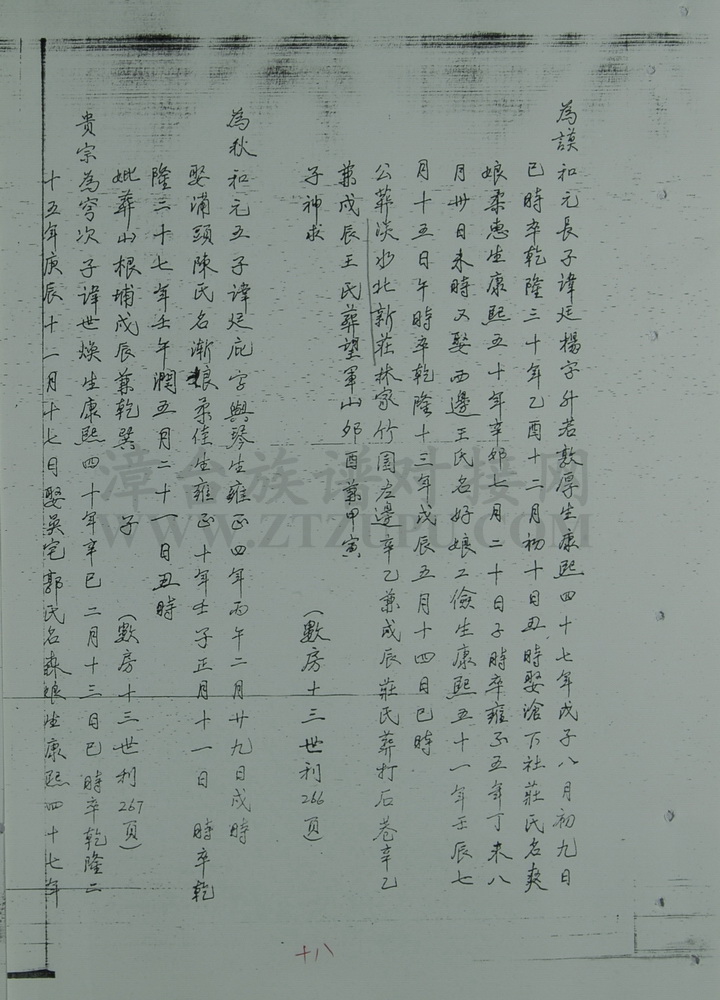 為謨和元長子諱廷楊字升若敦厚生康熙四十七年戊子八月初九日
巳時卒乾隆三十年乙酉十二月初十日丑時娶滄下社莊氏名爽
娘柔惠生康熙五十年辛卯七月二十日子時卒雍正五年丁未八
月廿日未時又娶西邊王氏名好娘工儉生康熙五十一年壬辰七
月十五日午時卒乾隆十三年戊辰五月十四日巳時
公葬淡水北新莊林家竹園左邊辛乙兼戌辰莊氏葬打石巷辛乙
兼戌辰王氏葬望軍山卯酉兼甲寅
子神求 (敷房十三世利266頁)
為秋和元五子諱廷庇字興琴生雍正四年丙午二月廿九日戌時
娶浦頭陳氏名漸娘柔佳生雍正十年壬子正月十一日 時卒乾
隆三十七年壬午潤五月二十一日丑時
妣葬山根埔戌辰兼乾巽 子 (敷房十三世利267頁)
貴宗為窍次子諱世煥生康熙四十年辛巳二月十三日巳時卒乾隆二
十五年庚辰十一月十七日娶吳宅郭氏名森娘生康熙四十七年
十八
漳台族谱对接网
WWW.ZTZUPU.COM